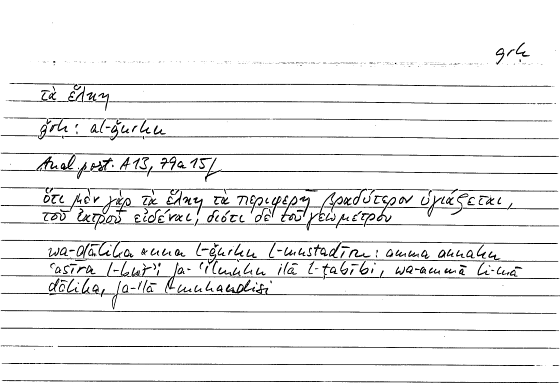 ǧrḥ
τὰ ἕλκη
ǧrḥ: al-ǧurḥu
Anal. post. A 13, 79a 15f
ὅτι μὲν γὰρ τὰ ἕλκη τὰ περιφερῆ βραδύτερον ὑγιάζεται,
τοῦ ἰατροῦ εἰδέναι, διότι δὲ τοῦ γεωμέτρου
wa-ḏālika anna l-ǧurḥu l-mustadīru: amma annahu
ʿasīru l-burʾi fa-ʿilmuhu ilā l-ṭabībi, wa-ammā li-mā
ḏālika, fa-ilā l-muhandisi